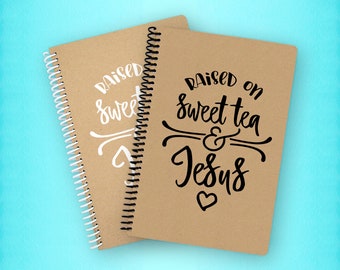 RAISED
sweet
J
RAISED ON
sweet tea
&
Jesus